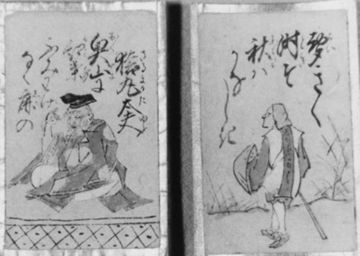 猿丸大夫
奥山に
紅葉
ふみわけ
なく鹿の
聲きく
時そ
秋は
かなしき